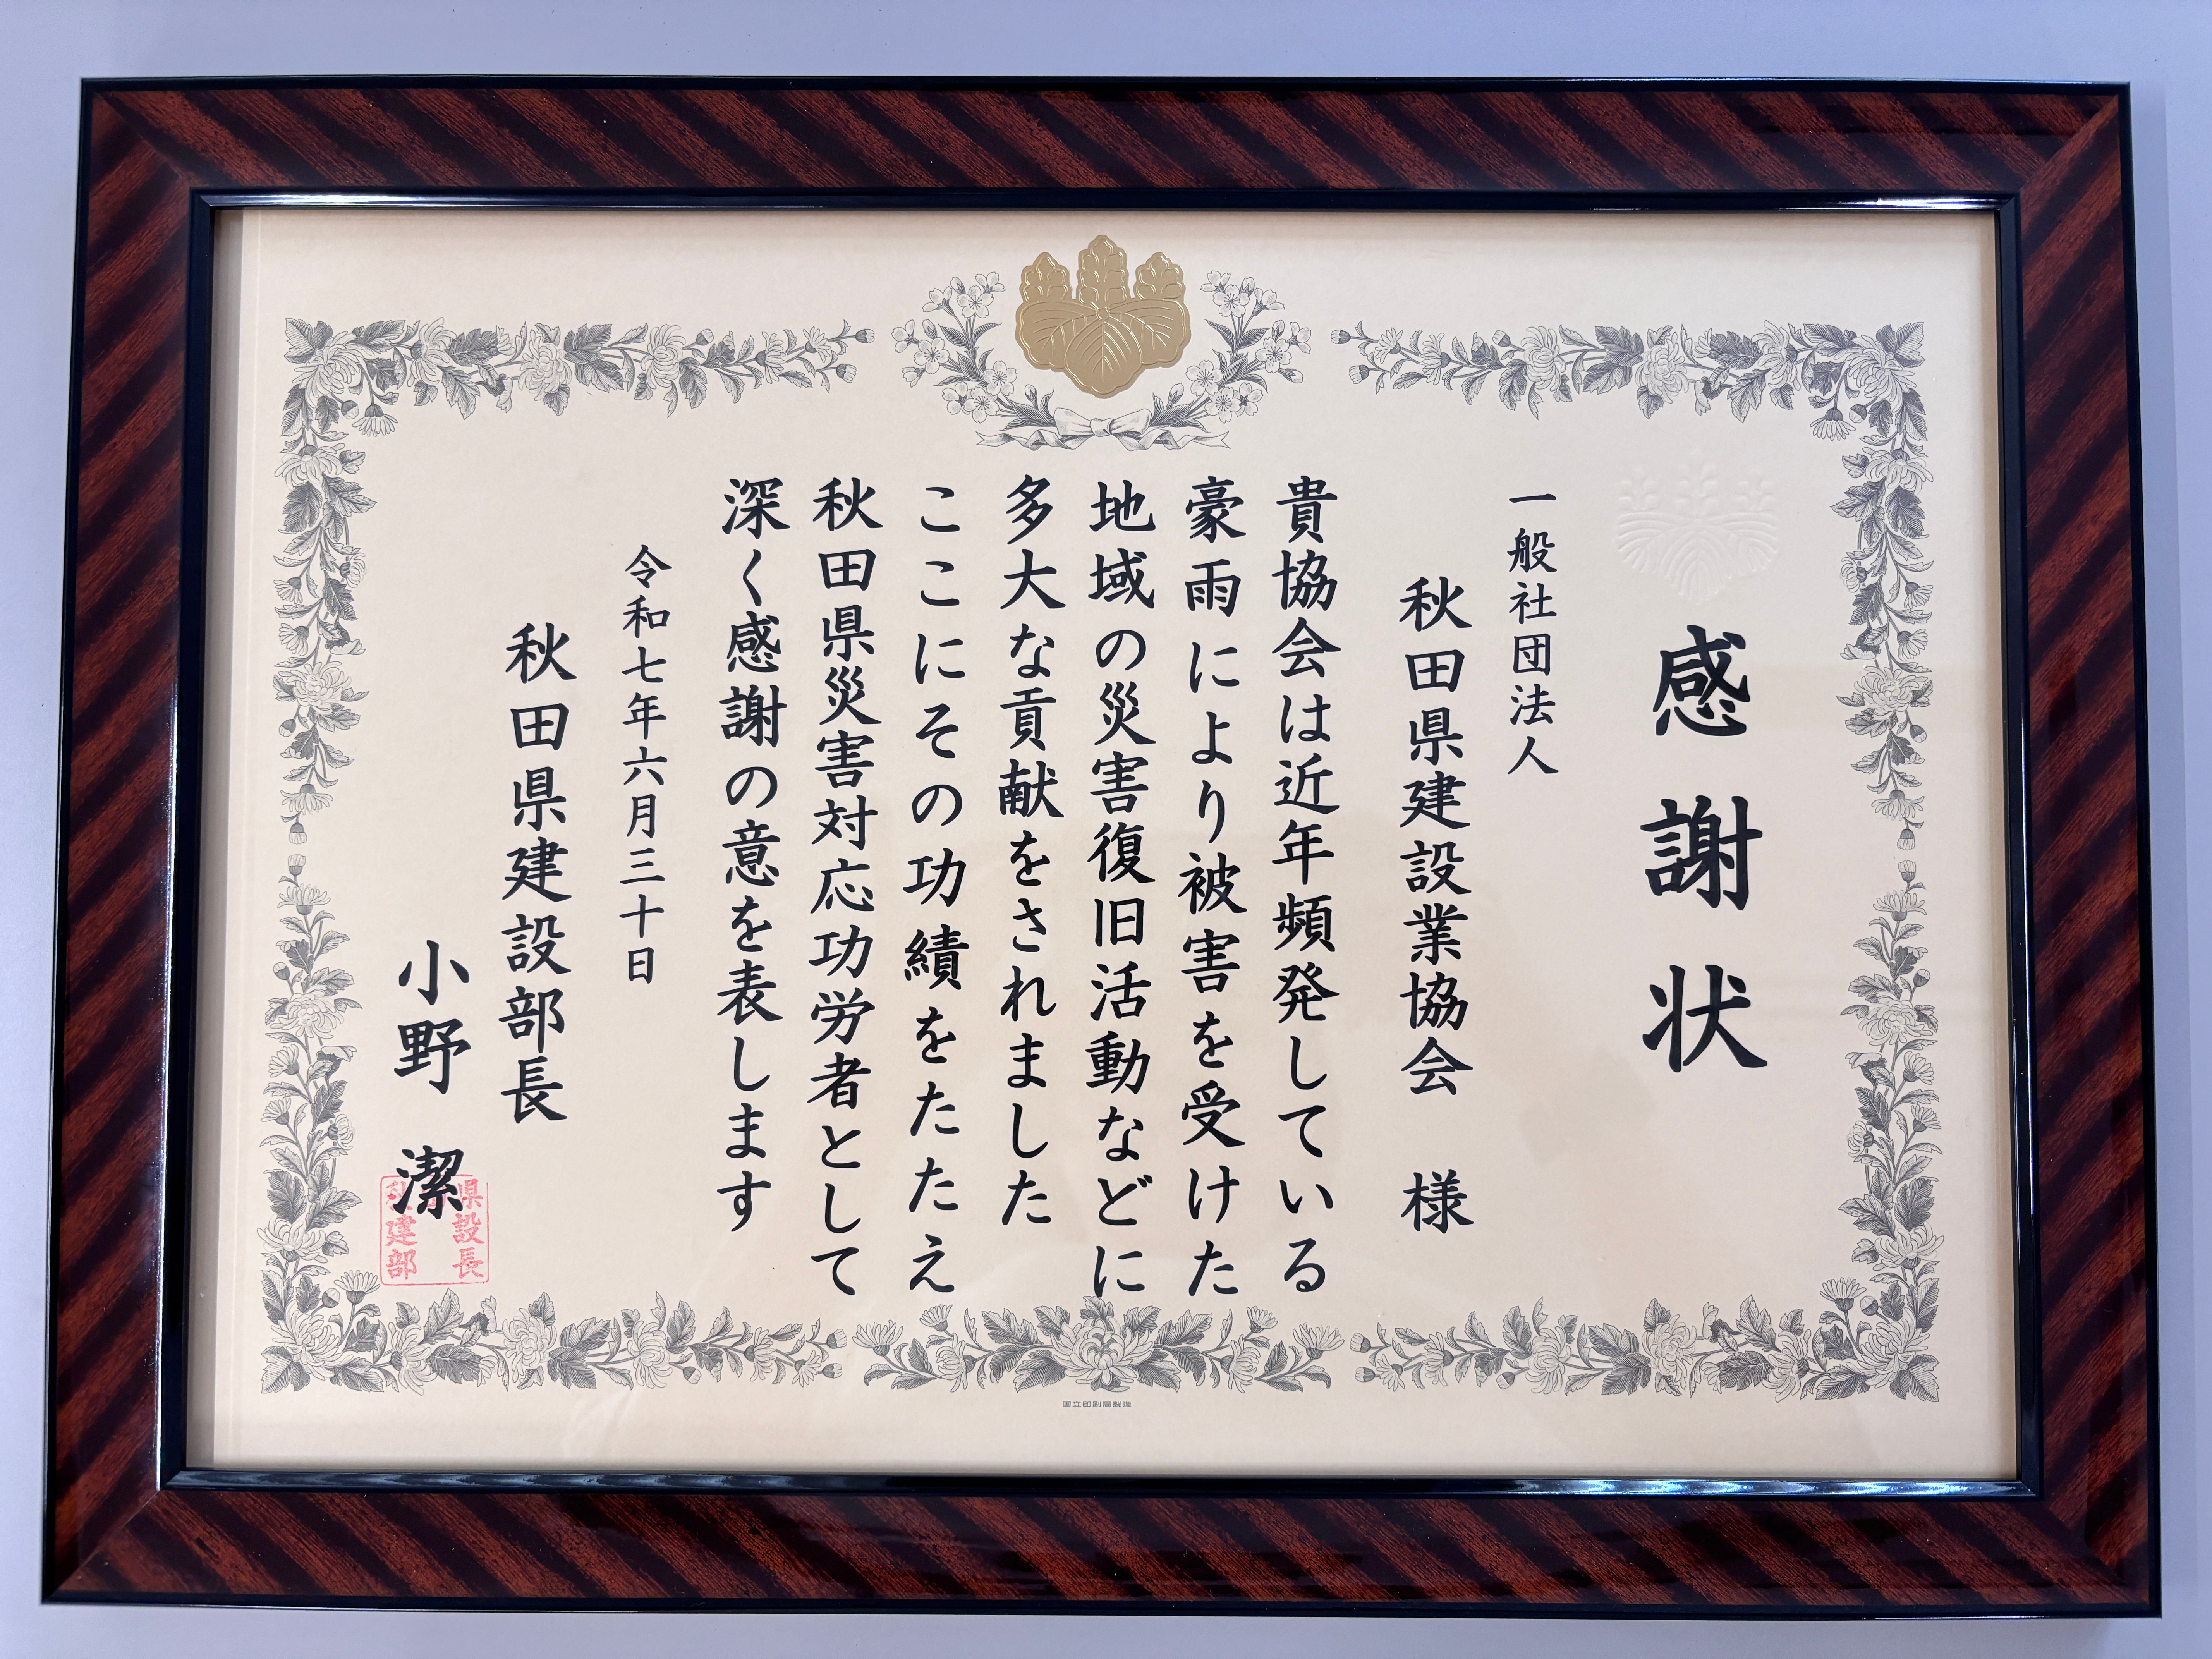 感謝状
一般社団法人
秋田県建設業協会 様
貴協会は近年頻発している
豪雨により被害を受けた
地域の災害復旧活動などに
多大な貢献をされました
ここにその功績をたたえ
秋田県災害対応功労者として
深く感謝の意を表します
令和七年六月三十日
秋田県建設部長
小野 潔
県設長
建部
国立印刷局製造